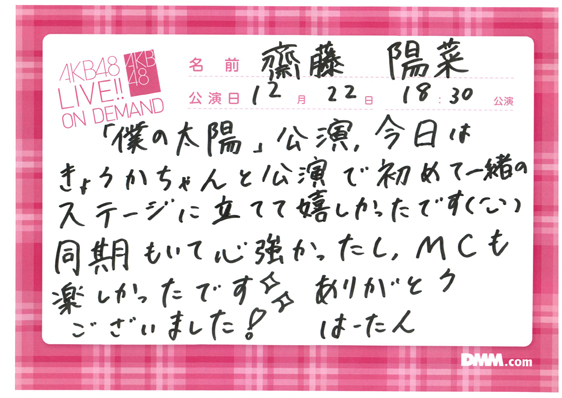 AKB48
LIVE!!
ON DEMAND
AKB
48
名前 齋藤 陽菜
公演日 12月22日 18:30公演
「僕の太陽」公演,今日は
きょうかちゃんと公演で初めて一緒の
ステージに立てて嬉しかったです(^^)
同期もいて心強かったし,MCも
楽しかったです✧✧ ありがとう
ございました! はーたん
DMM.com